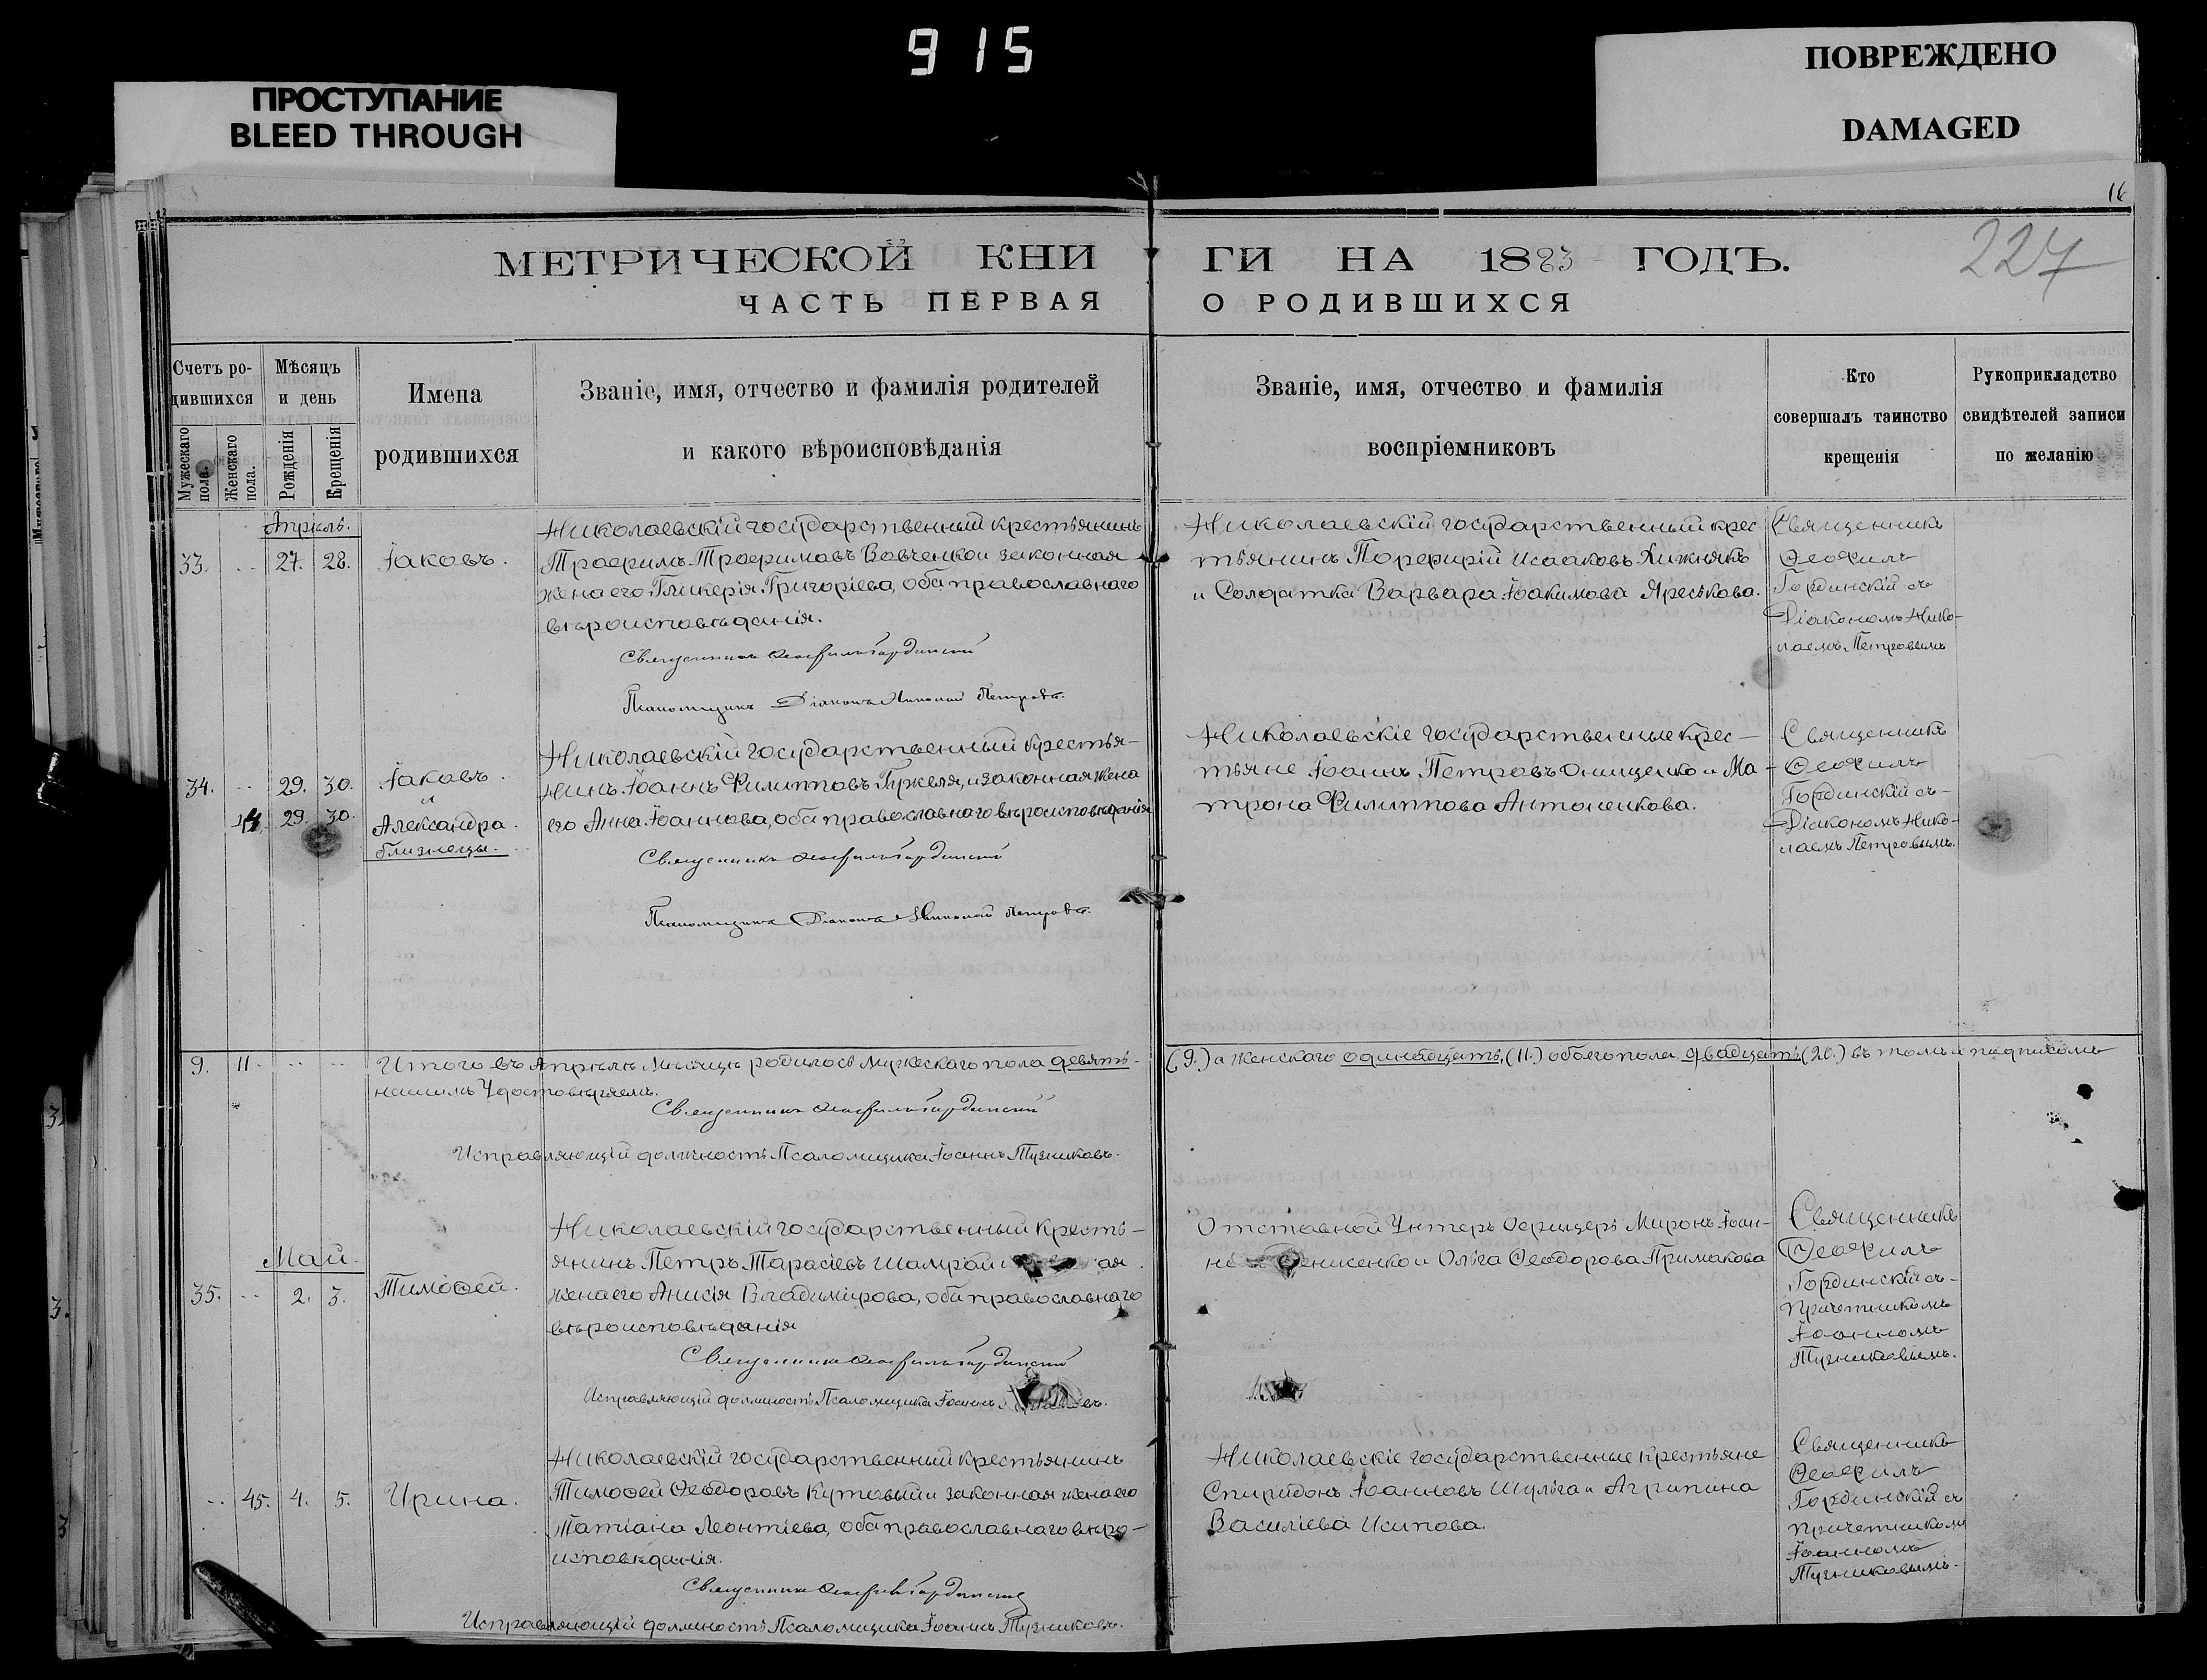 915
ПРОСТУПАНИЕ
BLEED THROUGH
ПОВРЕЖДЕНО
DAMAGED
16
227
МЕТРИЧЕСКОЙ КНИГИ НА 1883 ГОДЪ.
ЧАСТЬ ПЕРВАЯ О РОДИВШИХСЯ
Счетъ родившихся
Мужескаго пола.
Женскаго пола.
Мѣсяцъ и день
Рожденія
Крещенія
Имена
родившихся
Званіе, имя, отчество и фамилія родителей
и какого вѣроисповѣданія
Званіе, имя, отчество и фамилія
воспріемниковъ
Кто
совершалъ таинство
крещенія
Рукоприкладство
свидѣтелей записи
по желанію
Апрѣль.
33. .. 27. 28. Іаковъ.
Николаевскій государственный крестьянинъ
Трофимъ Трофимовъ Вовченко и законная
жена его Гликерія Григоріева, оба православнаго
вѣроисповѣданія.
Священникъ Ѳеофилъ Гординскій
Псаломщикъ Діаконъ Николай Петровъ.
Николаевскій государственный крес
тьянинъ Порфирій Исааковъ Хижнякъ
и Солдатка Варвара Іоакимова Яреськова.
Священникъ
Ѳеофилъ
Гординскій съ
Діакономъ Нико-
лаемъ Петровымъ
34. .. 29. 30. Іаковъ.
и
29. 30. Александра.
близнецы.
Николаевскій государственный крестья-
нинъ Іоаннъ Филипповъ Гужеля, и законная жена
его Анна Іоаннова, оба православнаго вѣроисповѣданія
Священникъ Ѳеофилъ Гординскій
Псаломщикъ Діаконъ Николай Петровъ.
Николаевскіе государственные крес-
тьяне Іоаннъ Петровъ Онищенко и Ма-
трона Филиппова Антоненкова.
Священникъ
Ѳеофилъ
Гординскій съ-
Діакономъ Нико-
лаемъ Петровымъ.
9. 11. .. .. Итого въ Апрѣлѣ Мѣсяцѣ родилось мужескаго пола девять (9.) а женскаго одинадцать, (11.) обоего пола двадцать (20.) въ томъ и подписомъ
нашимъ Удостовѣряемъ.
Священникъ Ѳеофилъ Гординскій
Исправляющій должность Псаломщика Іоаннъ Тузниковъ.
Май
35. .. 2. 3. Тимоѳей.
Николаевскій государственный кресть-
янинъ Петръ Тарасіевъ Шамрай
жена его Анисія Владимірова, оба православнаго
вѣроисповѣданія
Священникъ Ѳеофилъ Гординскій
Исправляющій должность Псаломщика Іоаннъ
Отставной Унтеръ Офицеръ Миронъ Іоан-
Денисенко и Ольга Ѳеодорова Примакова
Священникъ
Ѳеофилъ
Гординскій съ-
причетникомъ
Іоанномъ
Тузниковымъ.
.. 45. 4. 5. Ирина.
Николаевскій государственный крестьянинъ
Тимоѳей Ѳеодоровъ Кутовый и законная жена его
Татіана Леонтіева, оба православнаго вѣро-
исповѣданія.
Священникъ Ѳеофилъ Гординскій
Исправляющій должность Псаломщика Іоаннъ Тузниковъ.
Николаевскіе государственные крестьяне
Спиридонъ Іоанновъ Шульга и Агрипина
Василіева Исипова.
Священникъ
Ѳеофилъ
Гординскій съ
причетникомъ
Іоанномъ
Тузниковымъ.